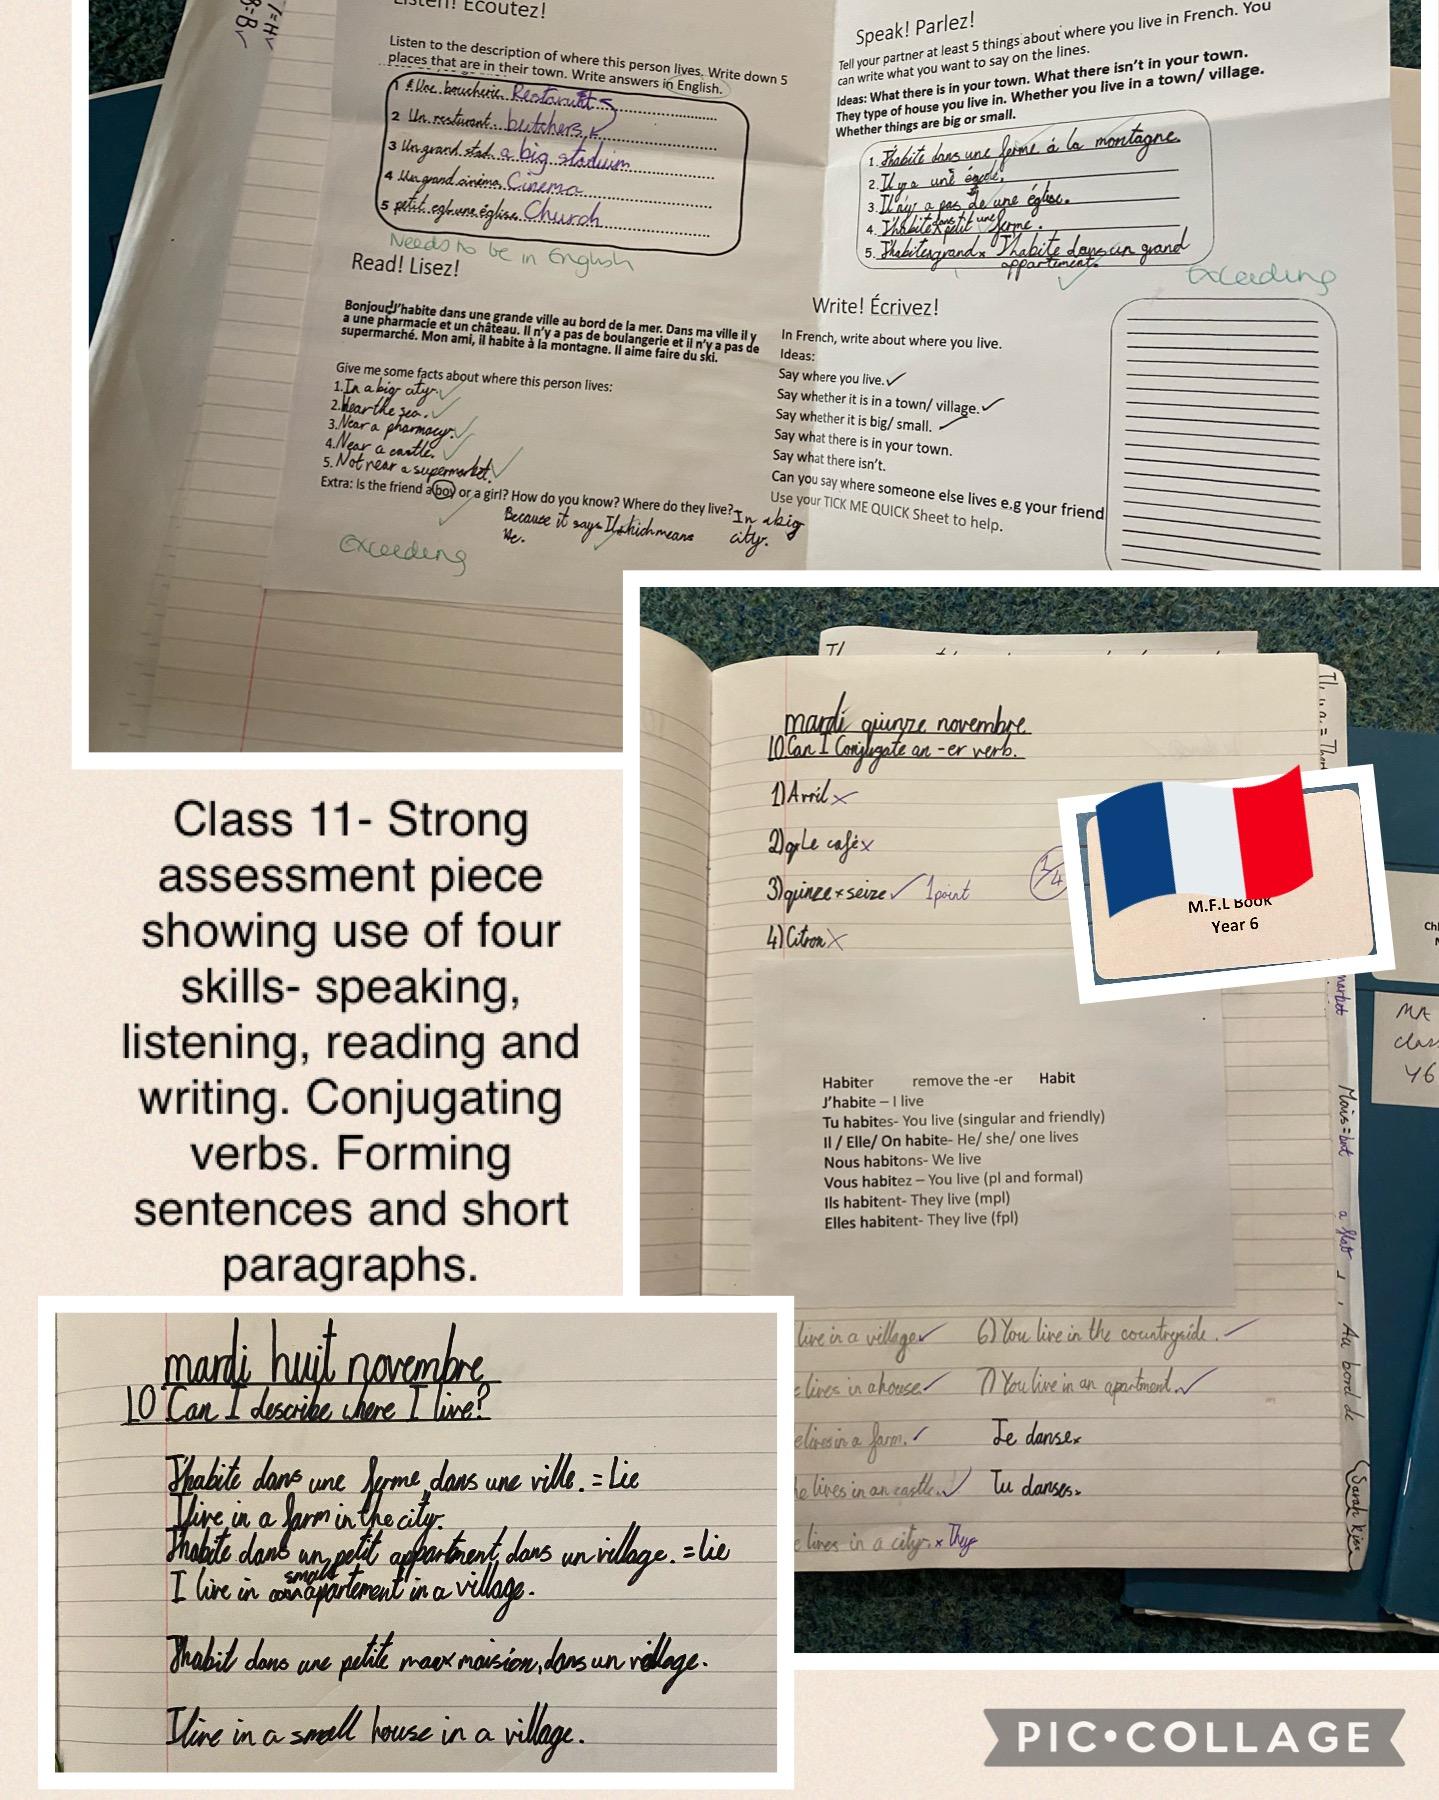 Listen! Écoutez!
Listen to the description of where this person lives. Write down 5
places that are in their town. Write answers in English.
1 Une boucherie Restarunt
2 Un resturant. butchers
3 Un grand stad. a big stadium
4 Un grand cinéma. Cinema
5 petit une église Church
Needs to be in English
Read! Lisez!
Bonjour J'habite dans une grande ville au bord de la mer. Dans ma ville il y
a une pharmacie et un château. Il n'y a pas de boulangerie et il n'y a pas de
supermarché. Mon ami, il habite à la montagne. Il aime faire du ski.
Give me some facts about where this person lives:
1. In a big city.
2. Near the sea.
3. Near a pharmacy.
4. Near a castle.
5. Not near a supermarket.
Extra: Is the friend a boy or a girl? How do you know? Where do they live?
Because it says Il which means
He.
In a big
city.
exceeding
Speak! Parlez!
Tell your partner at least 5 things about where you live in French. You
can write what you want to say on the lines.
Ideas: What there is in your town. What there isn't in your town.
They type of house you live in. Whether you live in a town/ village.
Whether things are big or small.
1. J'habite dans une ferme à la montagne.
2. Il y a une école.
3. Il n'y a pas de une église.
4. J'habite dans petit une ferme.
5. J'habite grand x J'habite dans un grand
appartiment.
Exceeding
Write! Écrivez!
In French, write about where you live.
Ideas:
Say where you live.
Say whether it is in a town/ village.
Say whether it is big/ small.
Say what there is in your town.
Say what there isn't.
Can you say where someone else lives e.g your friend
Use your TICK ME QUICK Sheet to help.
Class 11- Strong
assessment piece
showing use of four
skills- speaking,
listening, reading and
writing. Conjugating
verbs. Forming
sentences and short
paragraphs.
mardi quinze novembre
LO Can I Conjugate an -er verb.
1) Avril x
2) Le café x
3) quinze + seize ✓ 1 point
1/4
4) Citron x
M.F.L Book
Year 6
MA
class
Y6
Habiter remove the -er Habit
J'habite – I live
Tu habites- You live (singular and friendly)
Il / Elle/ On habite- He/ she/ one lives
Nous habitons- We live
Vous habitez – You live (pl and formal)
Ils habitent- They live (mpl)
Elles habitent- They live (fpl)
live in a village ✓ 6) You live in the countryside. ✓
lives in a house ✓ 7) You live in an apartment. ✓
lives in a farm. ✓ Je danse.
lives in an castle. ✓ Tu danses.
lives in a city. x They
Mais = but
a flat
Au bord de
mardi huit novembre
LO Can I describe where I live?
J'habite dans une ferme, dans une ville. = Lie
I live in a farm in the city.
J'habite dans un petit appartment, dans un village. = Lie
I live in small apartement in a village.
J'habit dans une petite maision, dans un village.
I live in a small house in a village.
PIC•COLLAGE